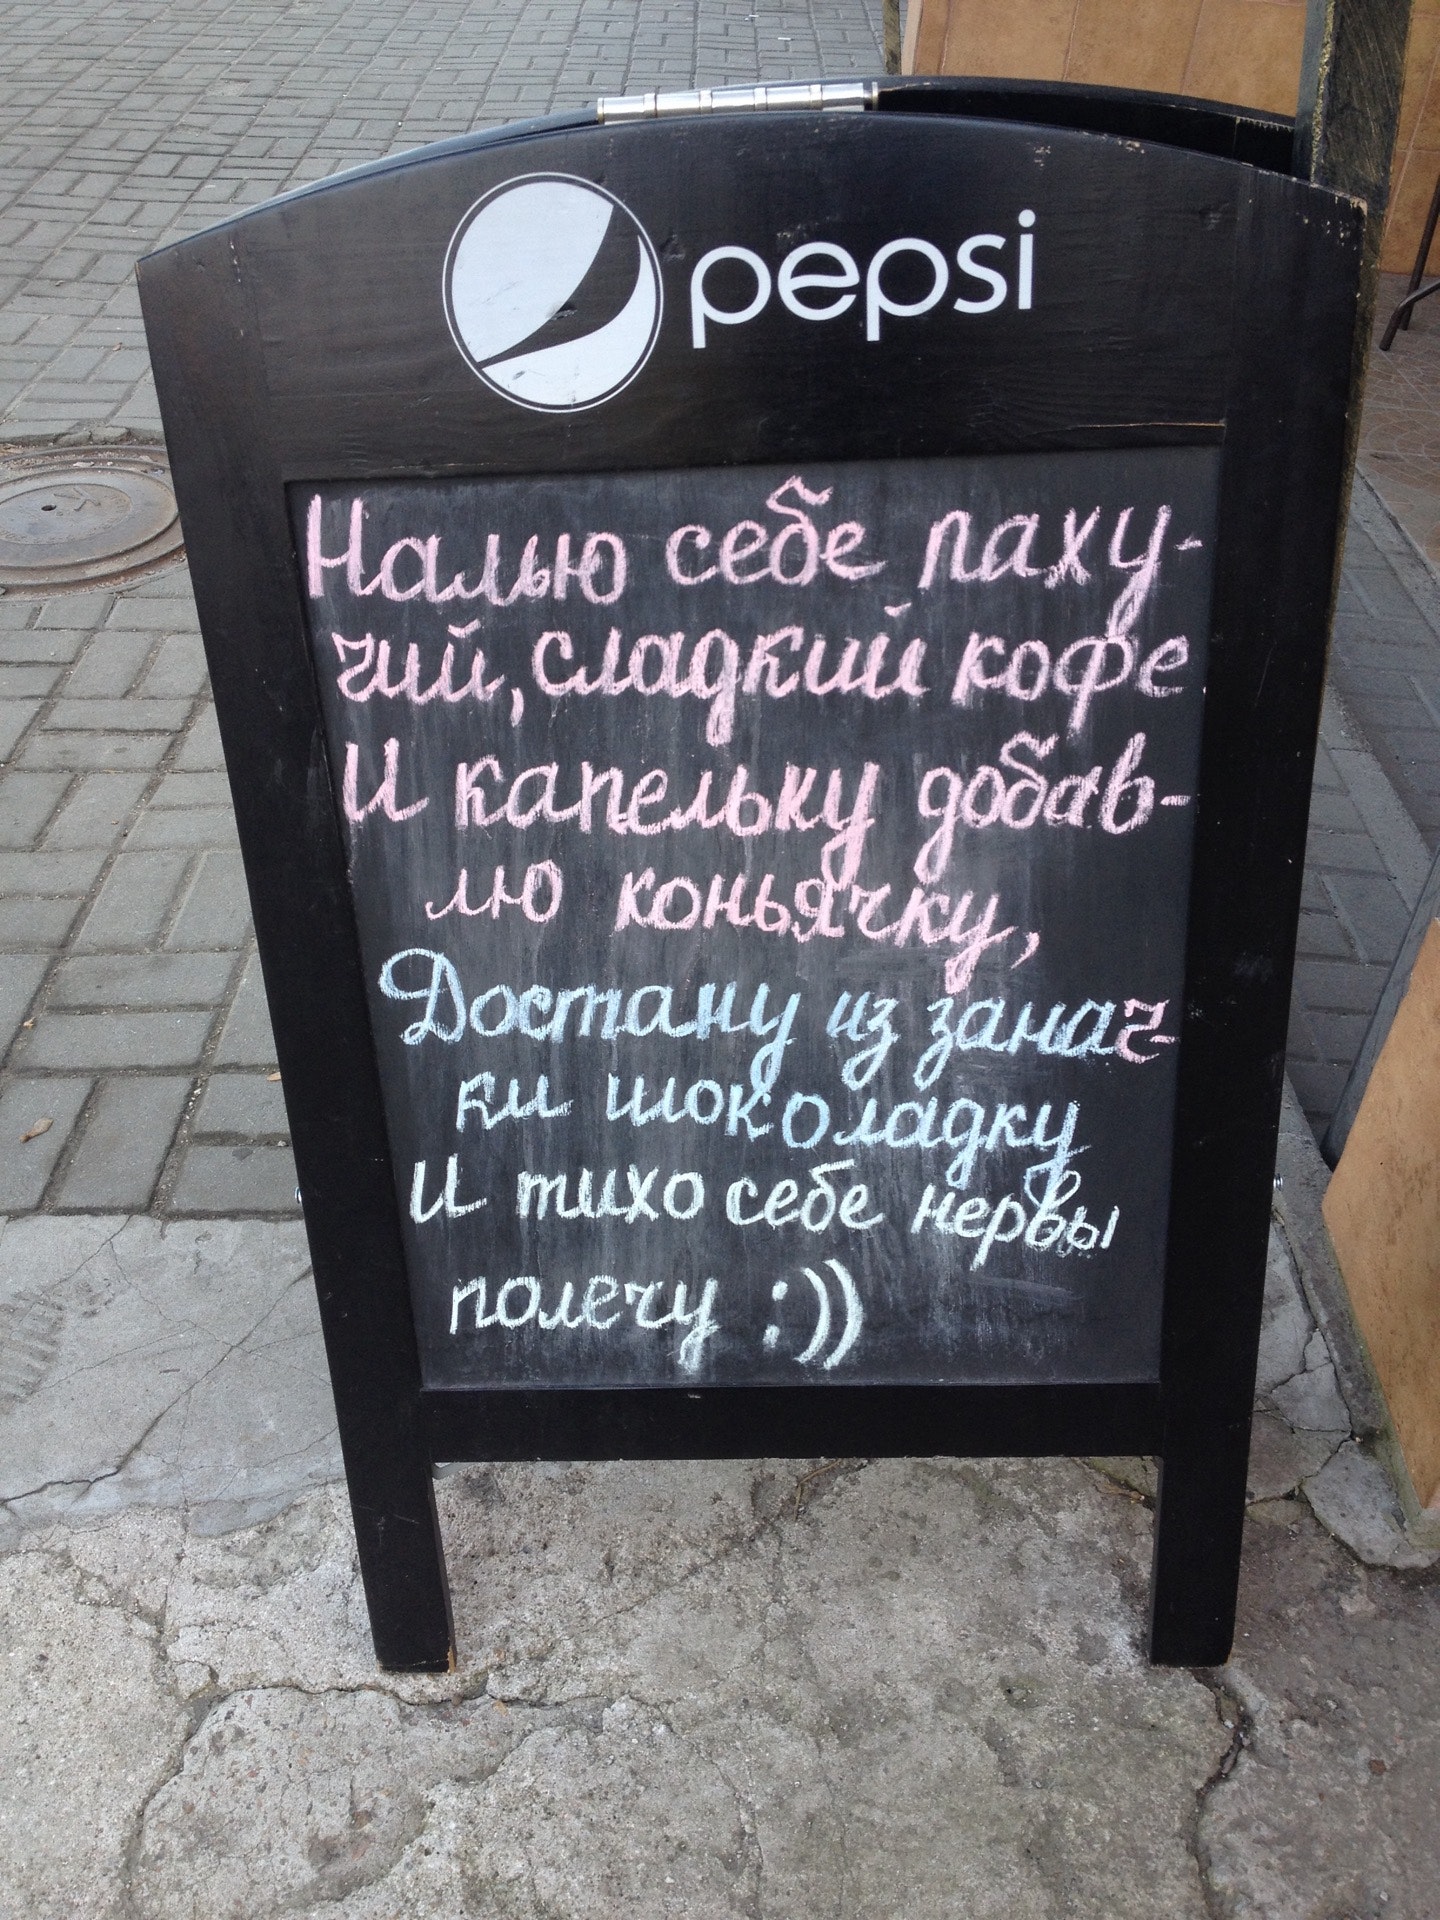 pepsi
Налью себе паху-
чий, сладкий кофе
И капельку добав-
лю коньячку,
Достану из занач-
ки шоколадку
И тихо себе нервы
полечу :))